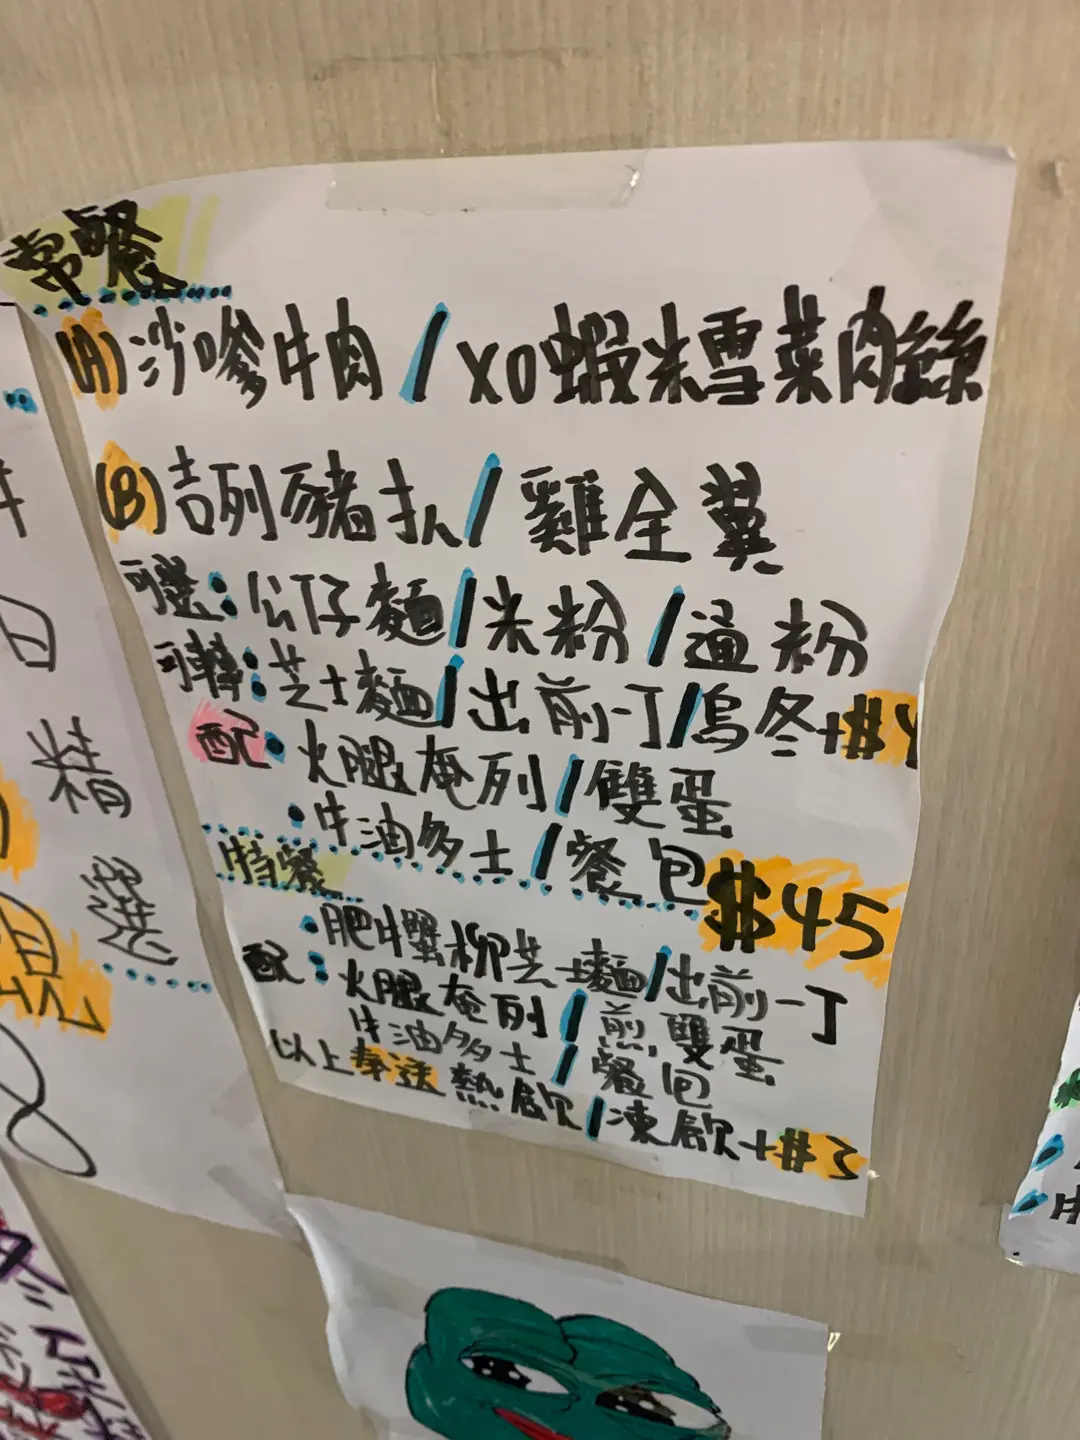 常餐
(A)沙嗲牛肉/XO蝦米雪菜肉絲
(B)吉列豬扒/雞全翼
可選:公仔麵/米粉/通粉
可轉:芝士麵/出前一丁/烏冬+$4
配:火腿奄列/雙蛋
•牛油多士/餐包
特餐 $45
•肥牛蟹柳芝士麵/出前一丁
配:火腿奄列/煎雙蛋
牛油多士/餐包
以上奉送熱飲/凍飲+$3
日
精
選